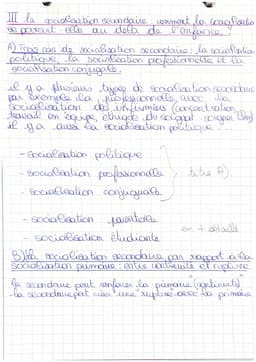 III la socialisation secondaire : comment la socialisation
se poursuit-elle au delà de l'enfance ?
A) Trois cas de socialisation secondaire : la socialisation
politique, la socialisation professionnelle et la
socialisation conjugale.
il y a plusieurs types de socialisation secondaire
par exemple la professionnelle avec la
socialisation des infirmières (concentration,
travail en équipe,
il y a aussi la socialisation politique ...
- socialisation politique
- socialisation professionnelle } titre A)
- socialisation conjuguale
- socialisation parentale
- socialisation étudiante
en + détaillé
B) la socialisation secondaire par rapport à la
socialisation primaire : entre continuité et rupture
la secondaire peut renforcer la primaire (continuité)
la secondaire peut créer une rupture avec la primaire